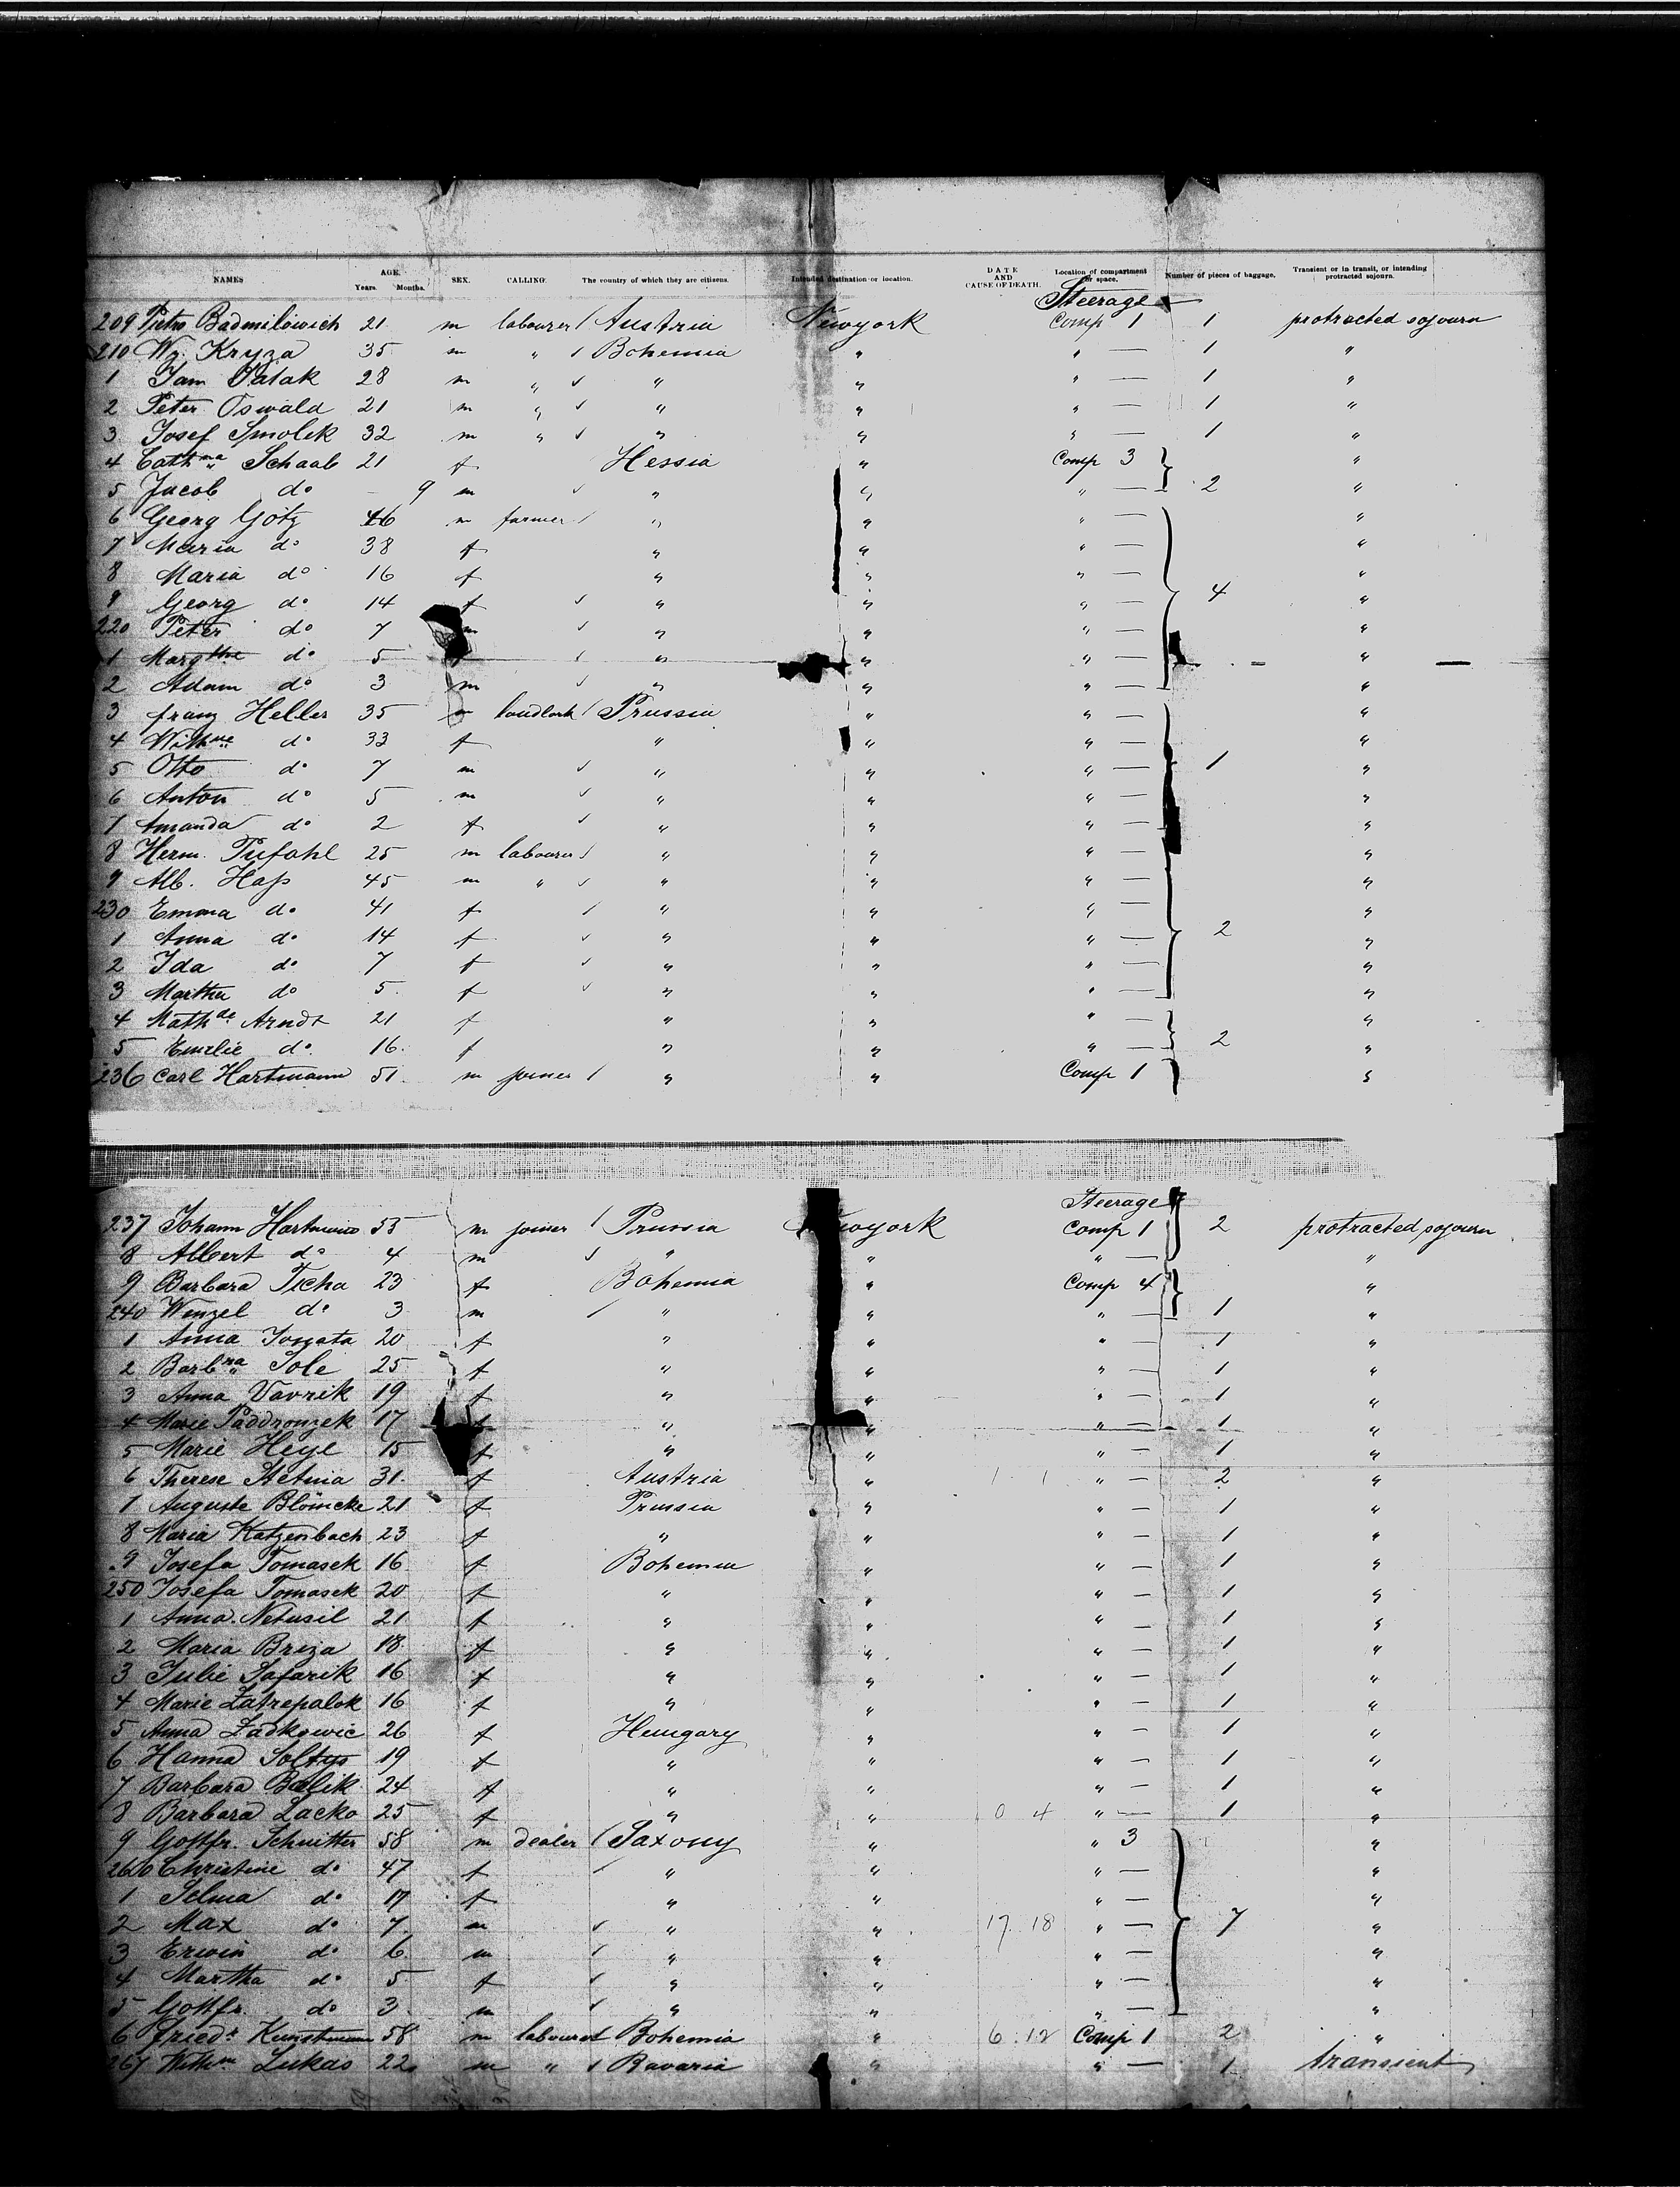 NAMES AGE. Years. Months. SEX. CALLING. The country of which they are citizens. Intended destination or location. DATE AND CAUSE OF DEATH. Location of compartment or space. Number of pieces of baggage. Transient or in transit, or intending protracted sojourn.
Steerage
209 Pietro Badmilowich 21 m labourer / Austria Newyork Comp 1 1 protracted sojourn
210 Wz. Kryza 35 m " / Bohemia " " — 1 "
1 Jam Patak 28 m " ✓ " " " — 1 "
2 Peter Oswald 21 m " ✓ " " " — 1 "
3 Josef Smolek 32 m " ✓ " " " — 1 "
4 Cathna Schaab 21 f Hessia " Comp 3 "
5 Jacob do - 9 m ✓ " " " — 2 "
6 Georg Götz 46 m farmer / " " " — "
7 Maria do 38 f " " " — "
8 Maria do 16 f " " " — "
9 Georg do 14 f ✓ " " " — 4 "
220 Peter do 7 m ✓ " " " — "
1 Margthe do 5 ✓ " " " — "
2 Adam do 3 m ✓ " " " — "
3 franz Heller 35 m / Prussia " " — "
4 Withne do 33 f " " " — "
5 Otto do 7 m ✓ " " " — 1 "
6 Anton do 5 m ✓ " " " — "
7 Amanda do 2 f ✓ " " " — "
8 Herm. Pufahl 25 m labourer / " " " — "
9 Alb. Hass 45 m " ✓ " " " — "
230 Emma do 41 f / " " " — "
1 Anna do 14 f ✓ " " " — 2 "
2 Ida do 7 f ✓ " " " — "
3 Martha do 5 f ✓ " " " — "
4 Mathde Arndt 21 f " " " — "
5 Emilie do 16 f " " " — 2 "
236 Carl Hartmann 51 m joiner / " " Comp 1 "
Steerage
237 Johann Hartmann 55 m joiner / Prussia Newyork Comp 1 2 protracted sojourn
8 Albert do 4 m ✓ " " " — "
9 Barbara Ticha 23 f Bohemia " Comp 4 "
240 Wenzel do 3 m / " " " — 1 "
1 Anna 20 f " " " — 1 "
2 Barbra Sole 25 f " " " — 1 "
3 Anna Vavrik 19 f " " " — 1 "
4 Marie Paddronzek 17 f " " " — 1 "
5 Marie Heye 15 f " " " — 1 "
6 Therese Stetnia 31 f Austria " 1 1 " — 2 "
7 Auguste Blömcke 21 f Prussia " " — 1 "
8 Maria Katzenbach 23 f " " " — 1 "
9 Josefa Tomasek 16 f Bohemia " " — 1 "
250 Josefa Tomasek 20 f " " " — 1 "
1 Anna Netusil 21 f " " " — 1 "
2 Maria Breza 18 f " " " — 1 "
3 Julie Safarik 16 f " " " — 1 "
4 Marie Zatrepalek 16 f " " " — 1 "
5 Anna Zadkowic 26 f Hungary " " — 1 "
6 Hanna Soltys 19 f " " " — 1 "
7 Barbara Balik 24 f " " " — 1 "
8 Barbara Lacko 25 f " " 0 4 " — 1 "
9 Gottfr. Schnitter 58 m dealer / Saxony " " 3 "
260 Christine do 47 f / " " " — "
1 Selma do 17 f " " " — "
2 Max do 7 m ✓ " " 17. 18 " — 7 "
3 Erwin do 6 m ✓ " " " — "
4 Martha do 5 f ✓ " " " — "
5 Gottfr. do 3 m ✓ " " " — "
6 friedr Kunstmann 58 m labourer / Bohemia " 6. 12 Comp 1 2 "
267 Lukas 22 m " ✓ Bavaria " " — 1 transient